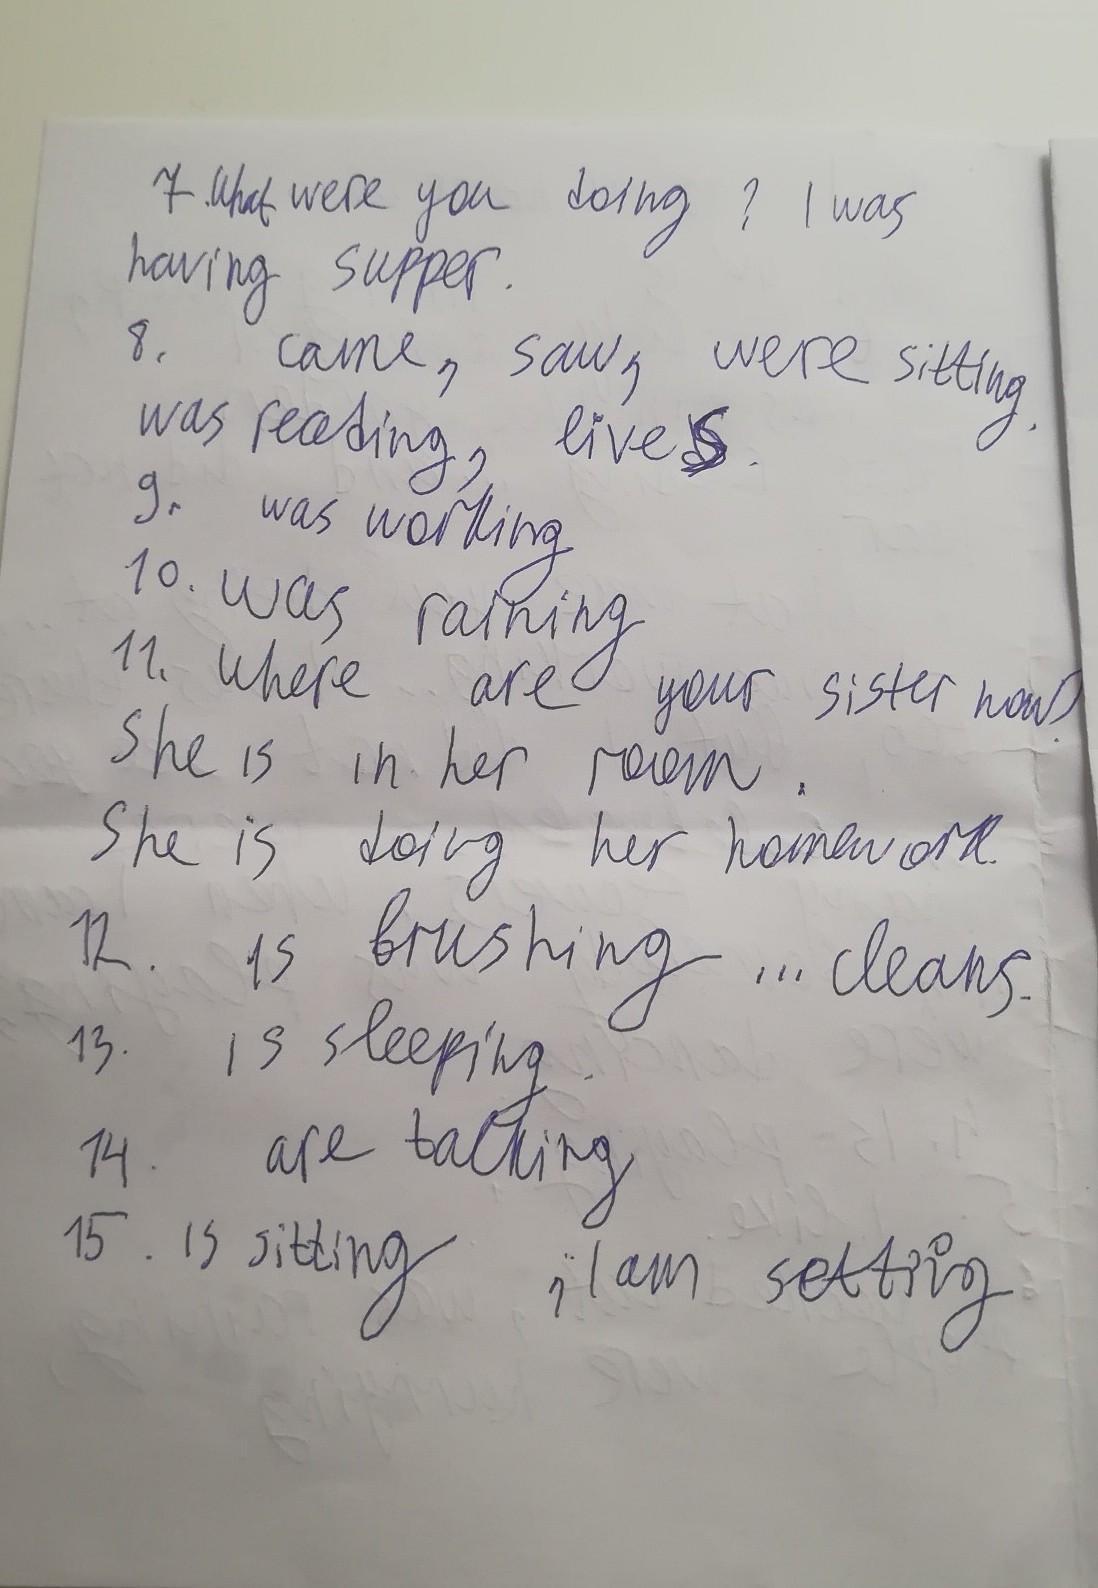 7. What were you doing ? I was
having supper.
8. came, saw, were sitting,
was reading, lives.
9. was working
10. was raining
11. Where are your sister now?
She is in her room.
She is doing her homework.
12. is brushing ... cleans.
13. is sleeping.
14. are talking
15. is sitting , I am setting